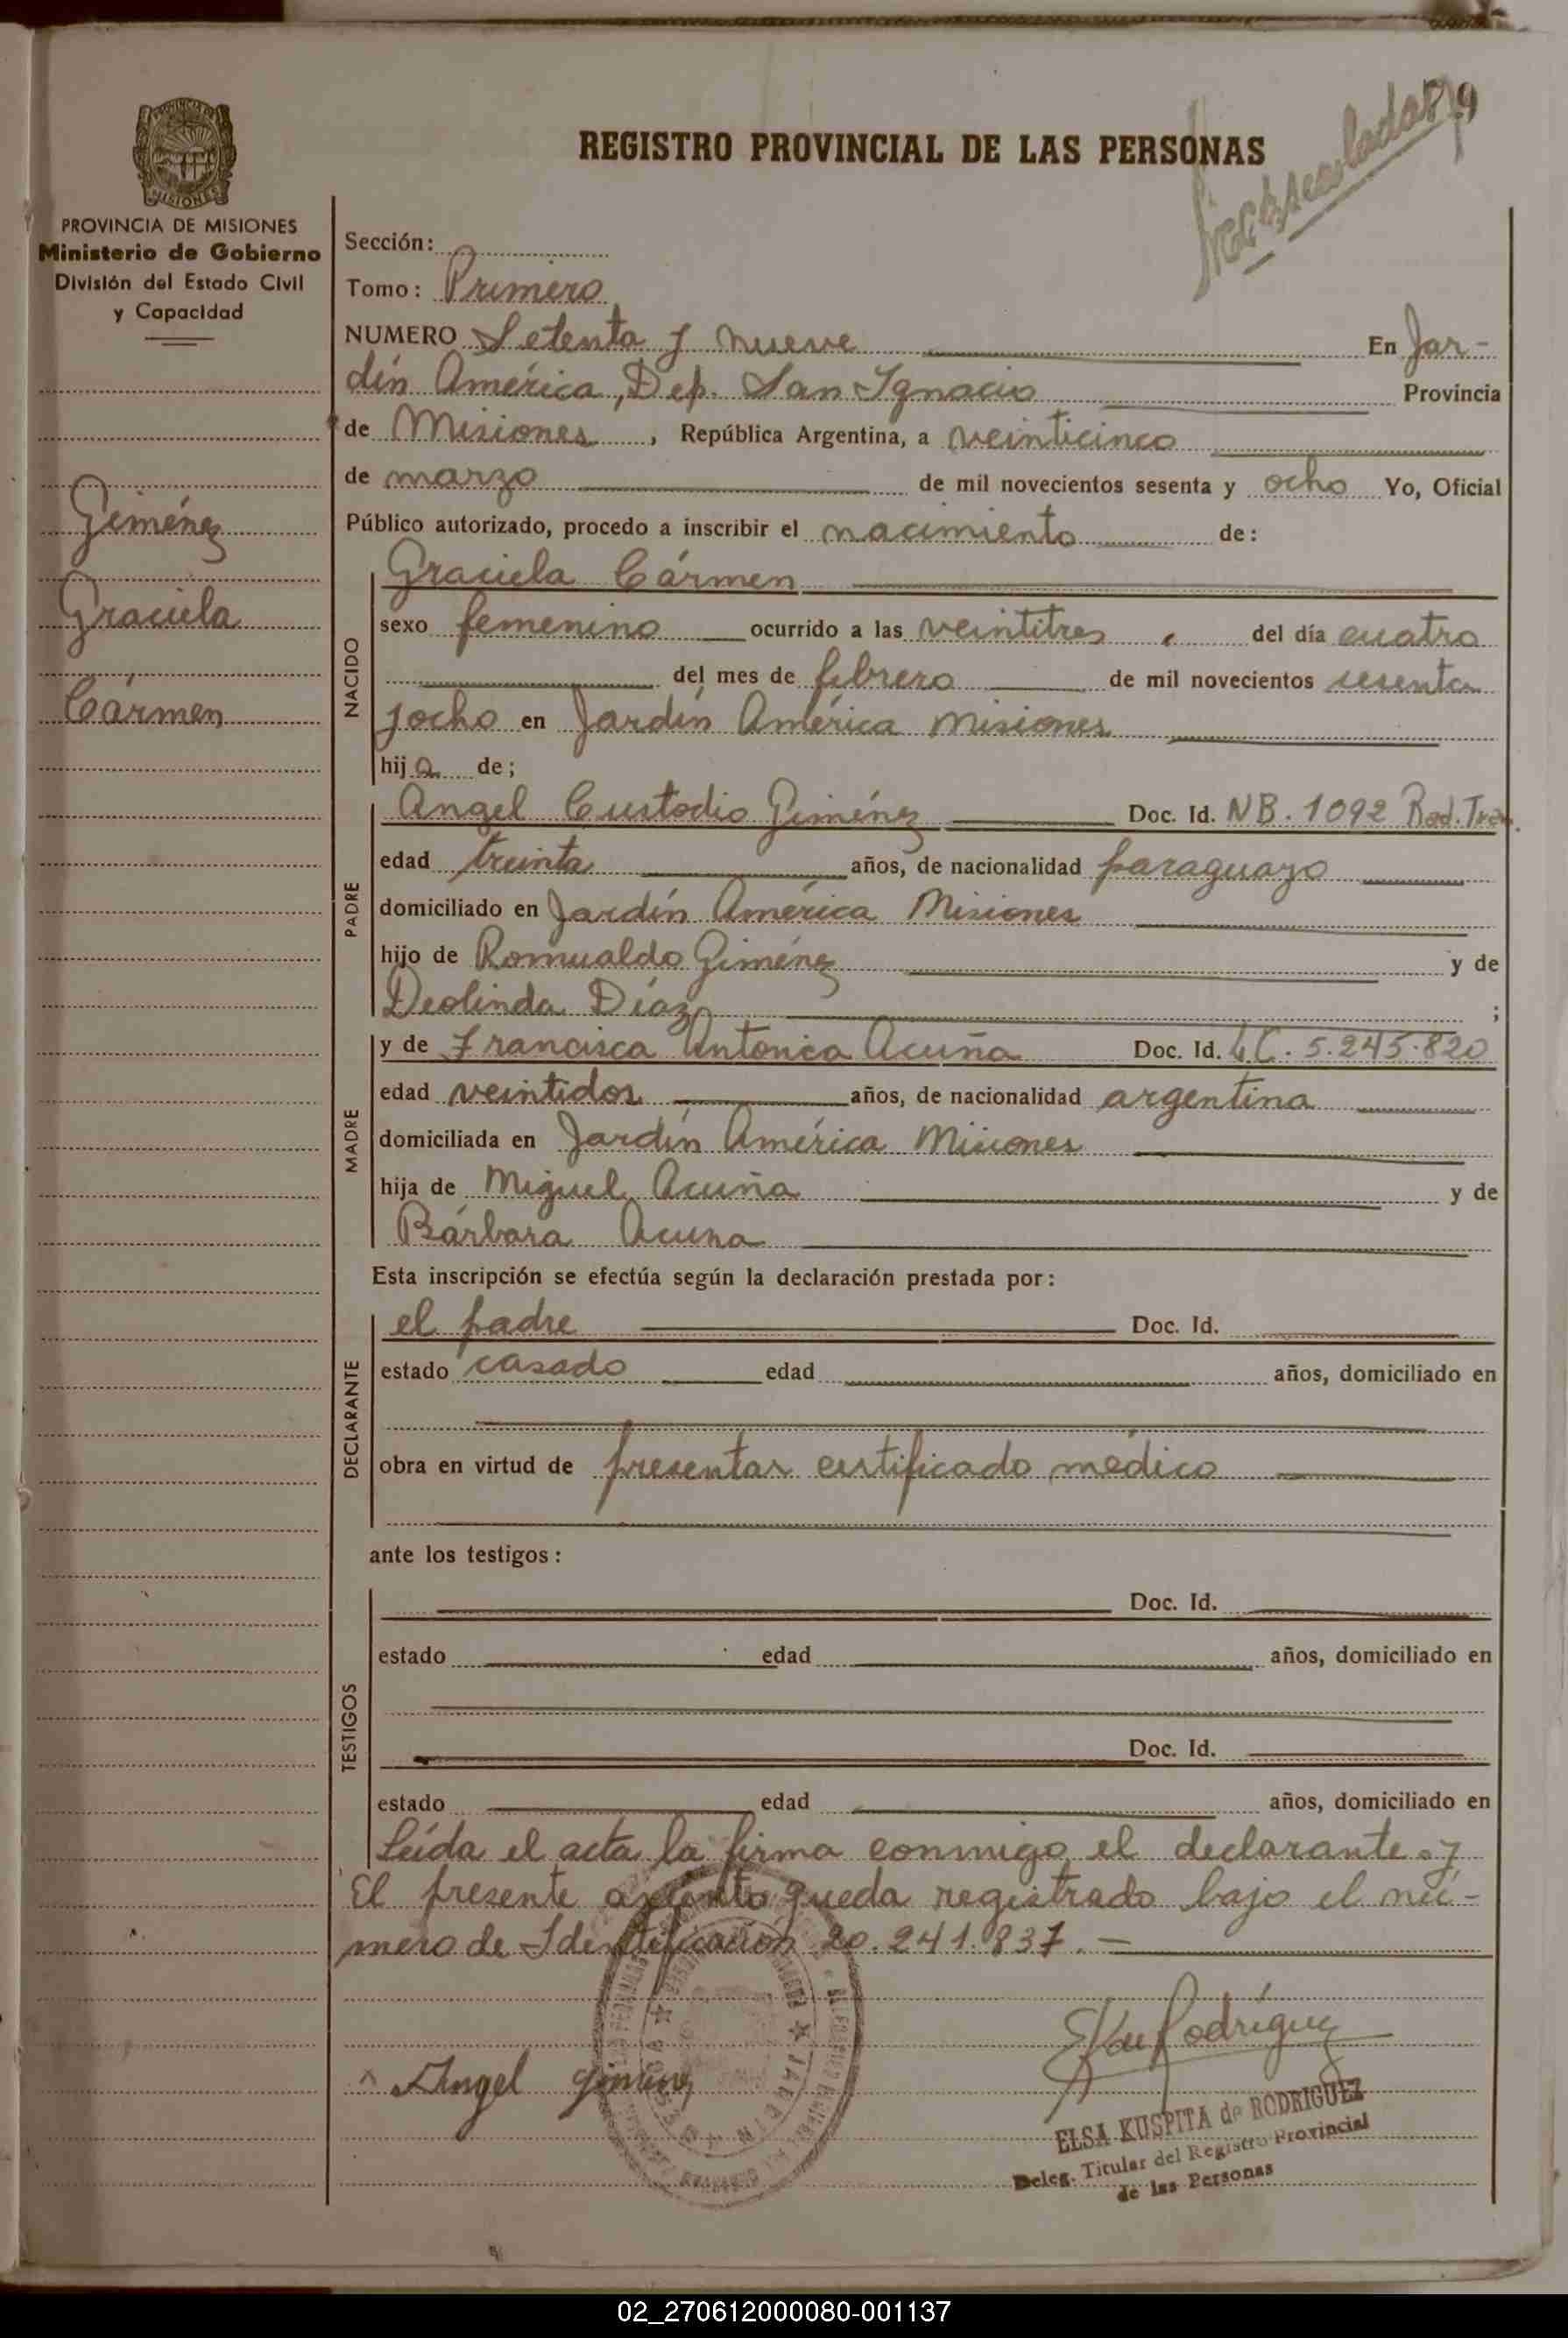 79
PROVINCIA DE MISIONES
REGISTRO PROVINCIAL DE LAS PERSONAS
PROVINCIA DE MISIONES
Ministerio de Gobierno
División del Estado Civil
y Capacidad
Giménez
Graciela
Cármen
Sección:
Tomo: Primero
NUMERO Setenta y nueve En Jar-
dín América, Dep. San Ignacio Provincia
de Misiones, República Argentina, a veinticinco
de marzo de mil novecientos sesenta y ocho Yo, Oficial
Público autorizado, procedo a inscribir el nacimiento de:
NACIDO
Graciela Cármen
sexo femenino ocurrido a las veintitres del día cuatro
del mes de febrero de mil novecientos sesenta
y ocho en Jardín América Misiones
hija de;
PADRE
Angel Custodio Giménez Doc. Id. NB. 1092 Rad.
edad treinta años, de nacionalidad paraguayo
domiciliado en Jardín América Misiones
hijo de Romualdo Giménez y de
Deolinda Díaz ;
MADRE
y de Francisca Antonia Acuña Doc. Id. LC. 5.245.820
edad veintidos años, de nacionalidad argentina
domiciliada en Jardín América Misiones
hija de Miguel Acuña y de
Bárbara Acuna
Esta inscripción se efectúa según la declaración prestada por:
DECLARANTE
el padre Doc. Id.
estado casado edad años, domiciliado en
obra en virtud de presentar certificado médico
ante los testigos:
TESTIGOS
Doc. Id.
estado edad años, domiciliado en
Doc. Id.
estado edad años, domiciliado en
Leída el acta la firma conmigo el declarante. y
El presente asiento queda registrado bajo el nú-
mero de Identificación 20.241.837.-
Angel Giménez
Rodríguez
ELSA KUSPITA de RODRIGUEZ
Deleg. Titular del Registro Provincial
de las Personas
02_270612000080-001137